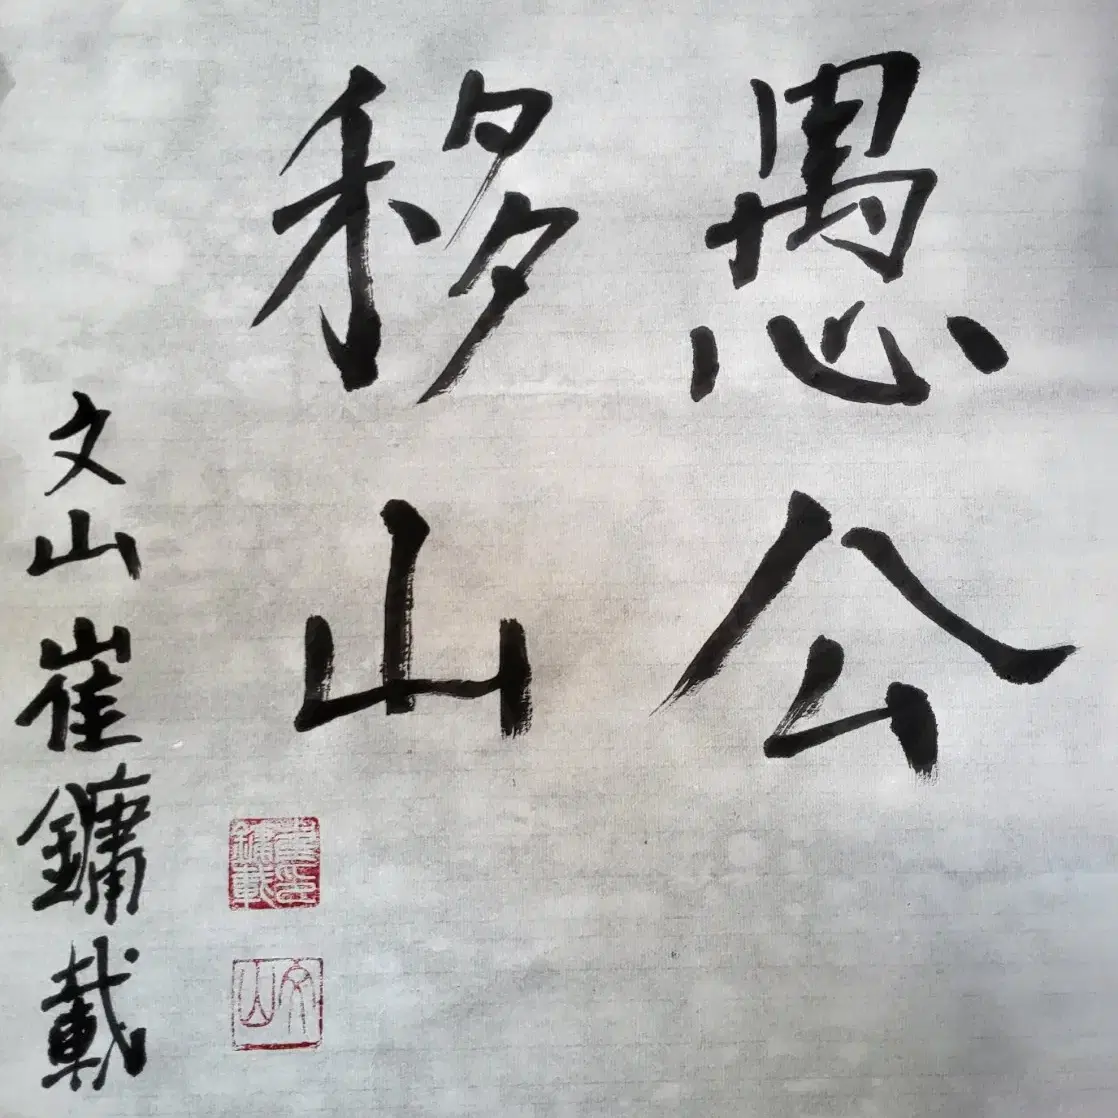 愚公
移山
文山崔鏞載
崔印
鏞載
文山